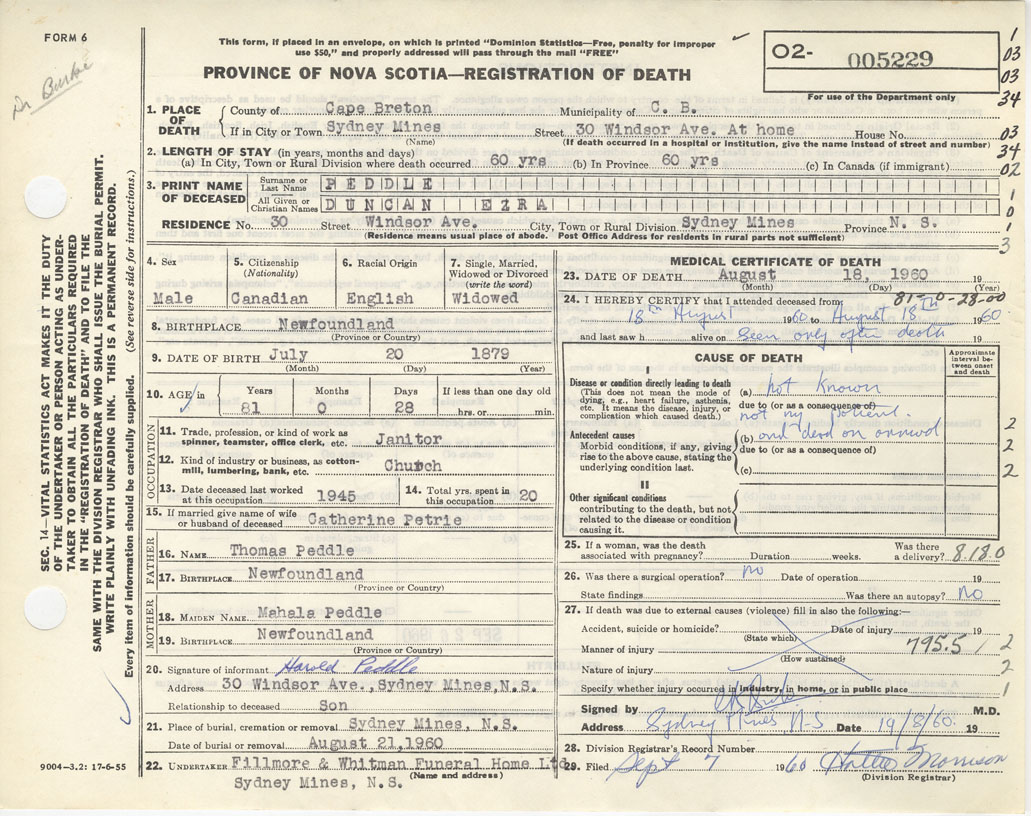 FORM 6
Dr Burke
This form, if placed in an envelope, on which is printed "Dominion Statistics—Free, penalty for improper
use $50," and properly addressed will pass through the mail "FREE"
PROVINCE OF NOVA SCOTIA—REGISTRATION OF DEATH
O2- 005229
For use of the Department only
1
03
03
34
03
34
02
1
0
1
3
SEC. 14—VITAL STATISTICS ACT MAKES IT THE DUTY
OF THE UNDERTAKER OR PERSON ACTING AS UNDER-
TAKER TO OBTAIN ALL THE PARTICULARS REQUIRED
IN THE "REGISTRATION OF DEATH" AND TO FILE THE
SAME WITH THE DIVISION REGISTRAR WHO SHALL ISSUE THE BURIAL PERMIT.
WRITE PLAINLY WITH UNFADING INK. THIS IS A PERMANENT RECORD.
Every item of information should be carefully supplied. (See reverse side for instructions.)
1. PLACE OF DEATH
County of Cape Breton Municipality of C. B.
If in City or Town Sydney Mines Street 30 Windsor Ave. At home House No.
(Name) (If death occurred in a hospital or institution, give the name instead of street and number)
2. LENGTH OF STAY (in years, months and days)
(a) In City, Town or Rural Division where death occurred 60 yrs (b) In Province 60 yrs (c) In Canada (if immigrant)
3. PRINT NAME OF DECEASED
Surname or Last Name PEDDLE
All Given or Christian Names DUNCAN EZRA
RESIDENCE No. 30 Street Windsor Ave. City, Town or Rural Division Sydney Mines Province N. S.
(Residence means usual place of abode. Post Office Address for residents in rural parts not sufficient)
4. Sex
Male
5. Citizenship
(Nationality)
Canadian
6. Racial Origin
English
7. Single, Married,
Widowed or Divorced
(write the word)
Widowed
8. BIRTHPLACE Newfoundland
(Province or Country)
9. DATE OF BIRTH July 20 1879
(Month) (Day) (Year)
10. AGE in
Years Months Days If less than one day old
81 0 28 hrs. or min.
OCCUPATION
11. Trade, profession, or kind of work as
spinner, teamster, office clerk, etc. Janitor
12. Kind of industry or business, as cotton-
mill, lumbering, bank, etc. Church
13. Date deceased last worked
at this occupation 1945
14. Total yrs. spent in
this occupation 20
15. If married give name of wife
or husband of deceased Catherine Petrie
FATHER
16. NAME Thomas Peddle
17. BIRTHPLACE Newfoundland
(Province or Country)
MOTHER
18. MAIDEN NAME Mahala Peddle
19. BIRTHPLACE Newfoundland
(Province or Country)
20. Signature of informant Harold Peddle
Address 30 Windsor Ave.,Sydney Mines,N.S.
Relationship to deceased Son
21. Place of burial, cremation or removal Sydney Mines, N.S.
Date of burial or removal August 21,1960
22. UNDERTAKER Fillmore & Whitman Funeral Home Ltd
(Name and address)
Sydney Mines, N.S.
9004—3.2: 17-6-55
MEDICAL CERTIFICATE OF DEATH
23. DATE OF DEATH August 18, 1960 19
(Month) (Day) (Year)
81-0-28-00
24. I HEREBY CERTIFY that I attended deceased from
18th August 1960 to August 18th 1960
and last saw h alive on Seen only after death
CAUSE OF DEATH
Approximate
interval be-
tween onset
and death
I
Disease or condition directly leading to death
(This does not mean the mode of
dying, e.g., heart failure, asthenia,
etc. It means the disease, injury, or
complication which caused death.)
(a) not known
due to (or as a consequence of)
not my patient.
Antecedent causes
Morbid conditions, if any, giving
rise to the above cause, stating the
underlying condition last.
(b) and dead on arrival
due to (or as a consequence of)
(c)
2
2
2
II
Other significant conditions
contributing to the death, but not
related to the disease or condition
causing it.
25. If a woman, was the death
associated with pregnancy? Duration weeks. Was there
a delivery? 818.0
26. Was there a surgical operation? no Date of operation 19
State findings Was there an autopsy? No
27. If death was due to external causes (violence) fill in also the following:—
Accident, suicide or homicide? Date of injury 19
(State which)
Manner of injury 795.5 1 2
(How sustained)
Nature of injury 2
Specify whether injury occurred in industry, in home, or in public place 1
Signed by M.D.
Address Sydney Mines N-S Date 19/8/60. 19
28. Division Registrar's Record Number
29. Filed Sept 7 1960 Hattie Morrison
(Division Registrar)